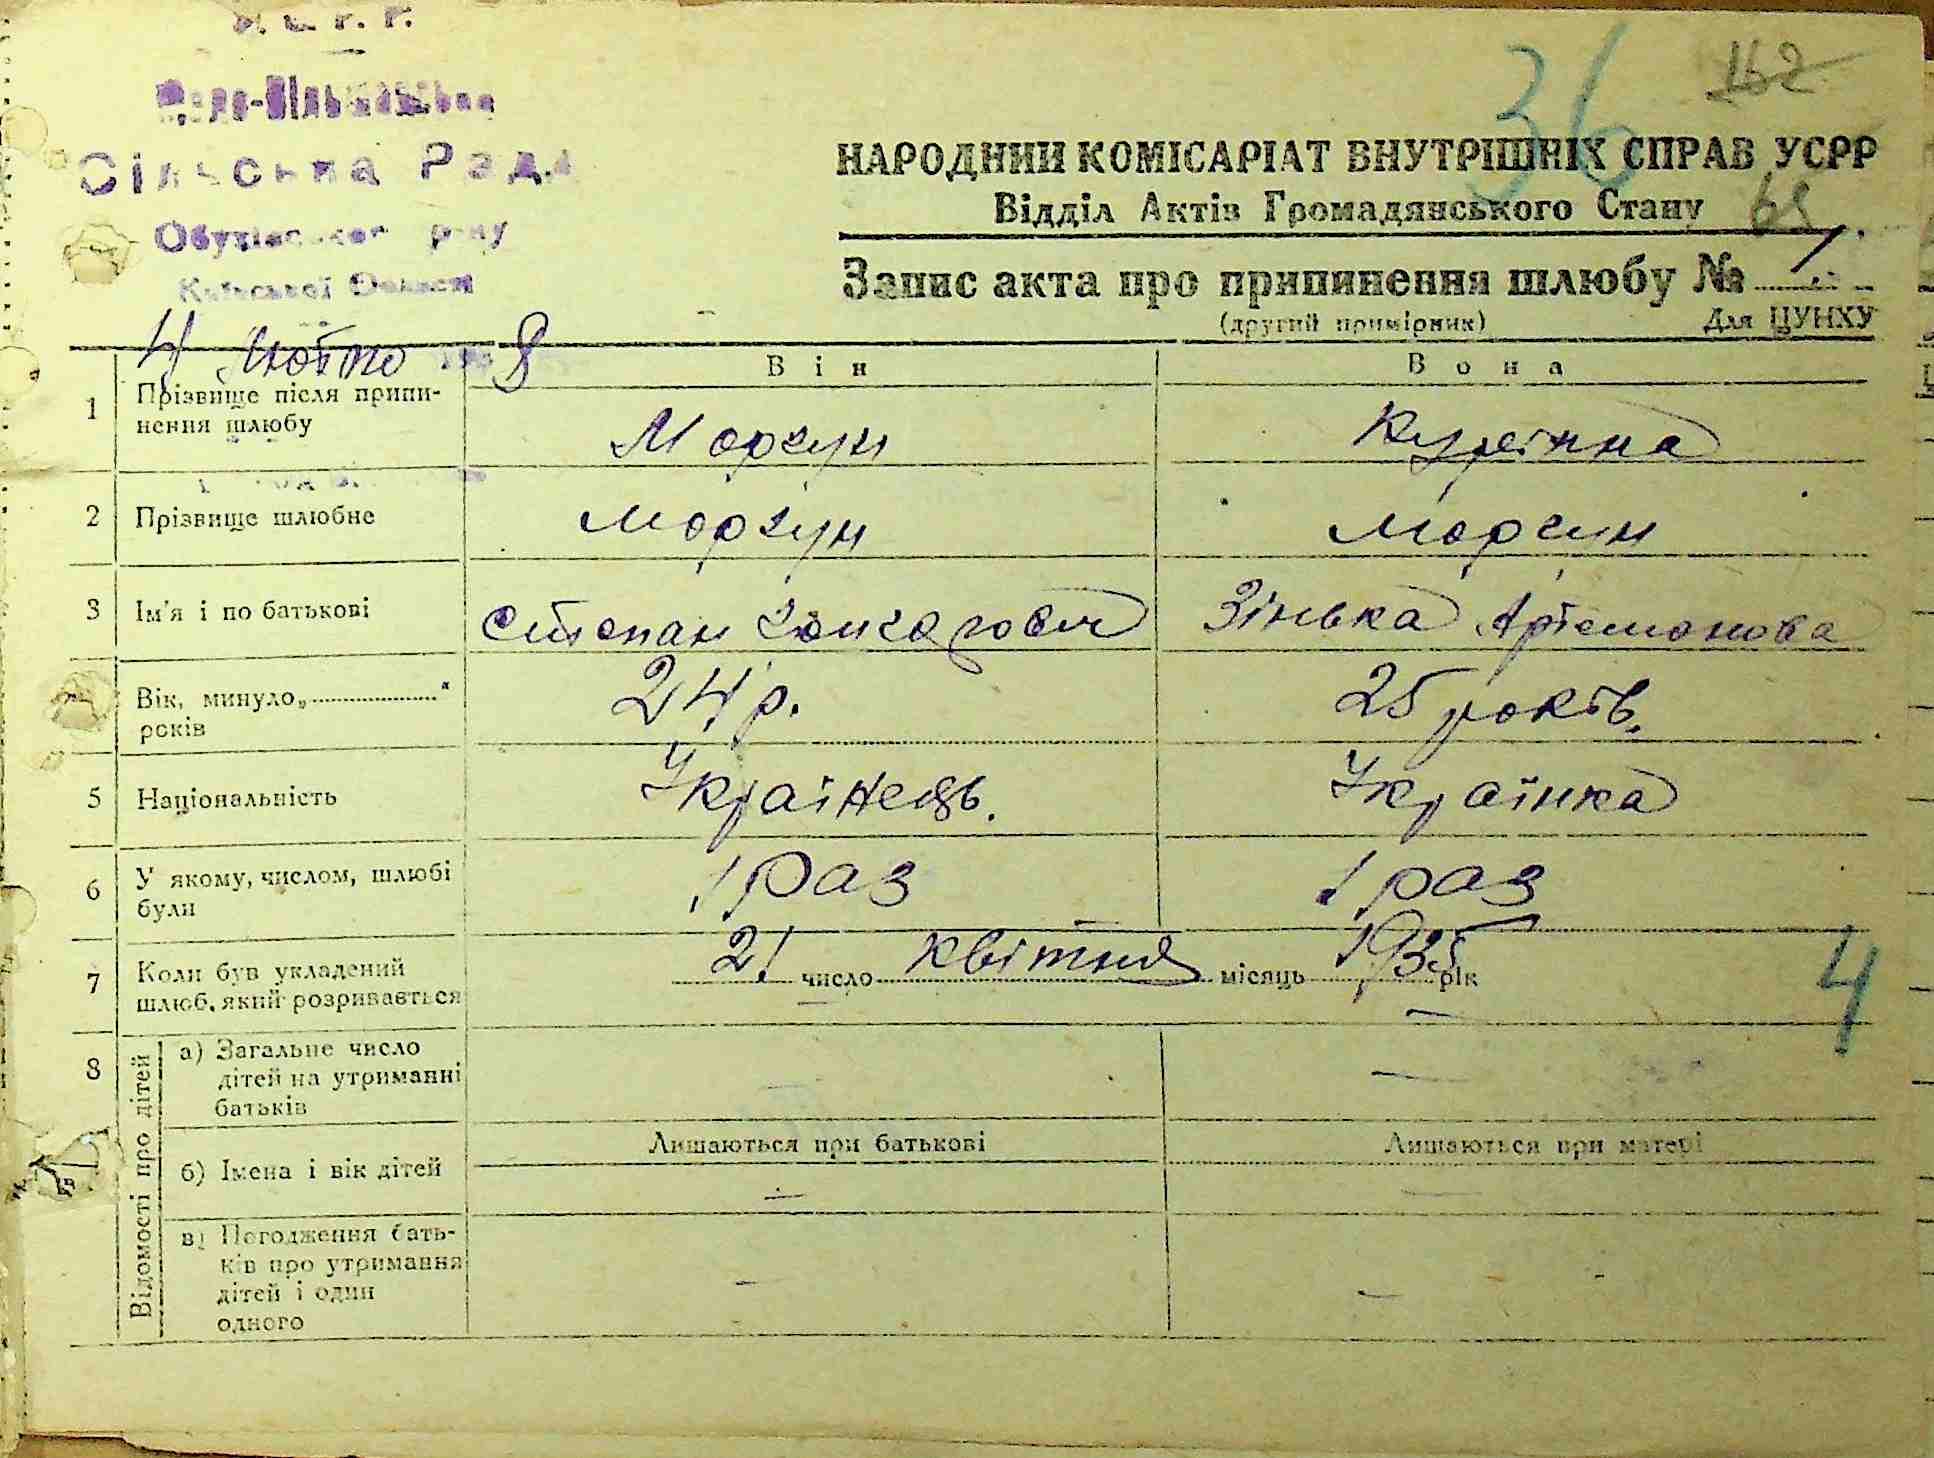 162
36
Сільська Рада
Обухівського р-ну
Київської Области
4 Лютого 193 8
НАРОДНИЙ КОМІСАРІАТ ВНУТРІШНІХ СПРАВ УСРР
Відділ Актів Громадянського Стану
Запис акта про припинення шлюбу № 1
(другий примірник) Для ЦУНХУ
Він Вона
1 Прізвище після припи-
нення шлюбу Моргун Курінна
2 Прізвище шлюбне Моргун Моргун
3 Ім'я і по батькові Степан Зінька Артемонова
Вік, минуло „ “
років 24 р. 25 років.
5 Національність Українець. Українка
6 У якому, числом, шлюбі
були 1 раз 1 раз
7 Коли був укладений
шлюб, який розривається 21 число квітня місяць 1935 рік
4
8 Відомості про дітей
а) Загальне число
дітей на утриманні
батьків — —
Лишаються при батькові Лишаються при матері
б) Імена і вік дітей — —
в) Погодження бать-
ків про утримання
дітей і один
одного — —